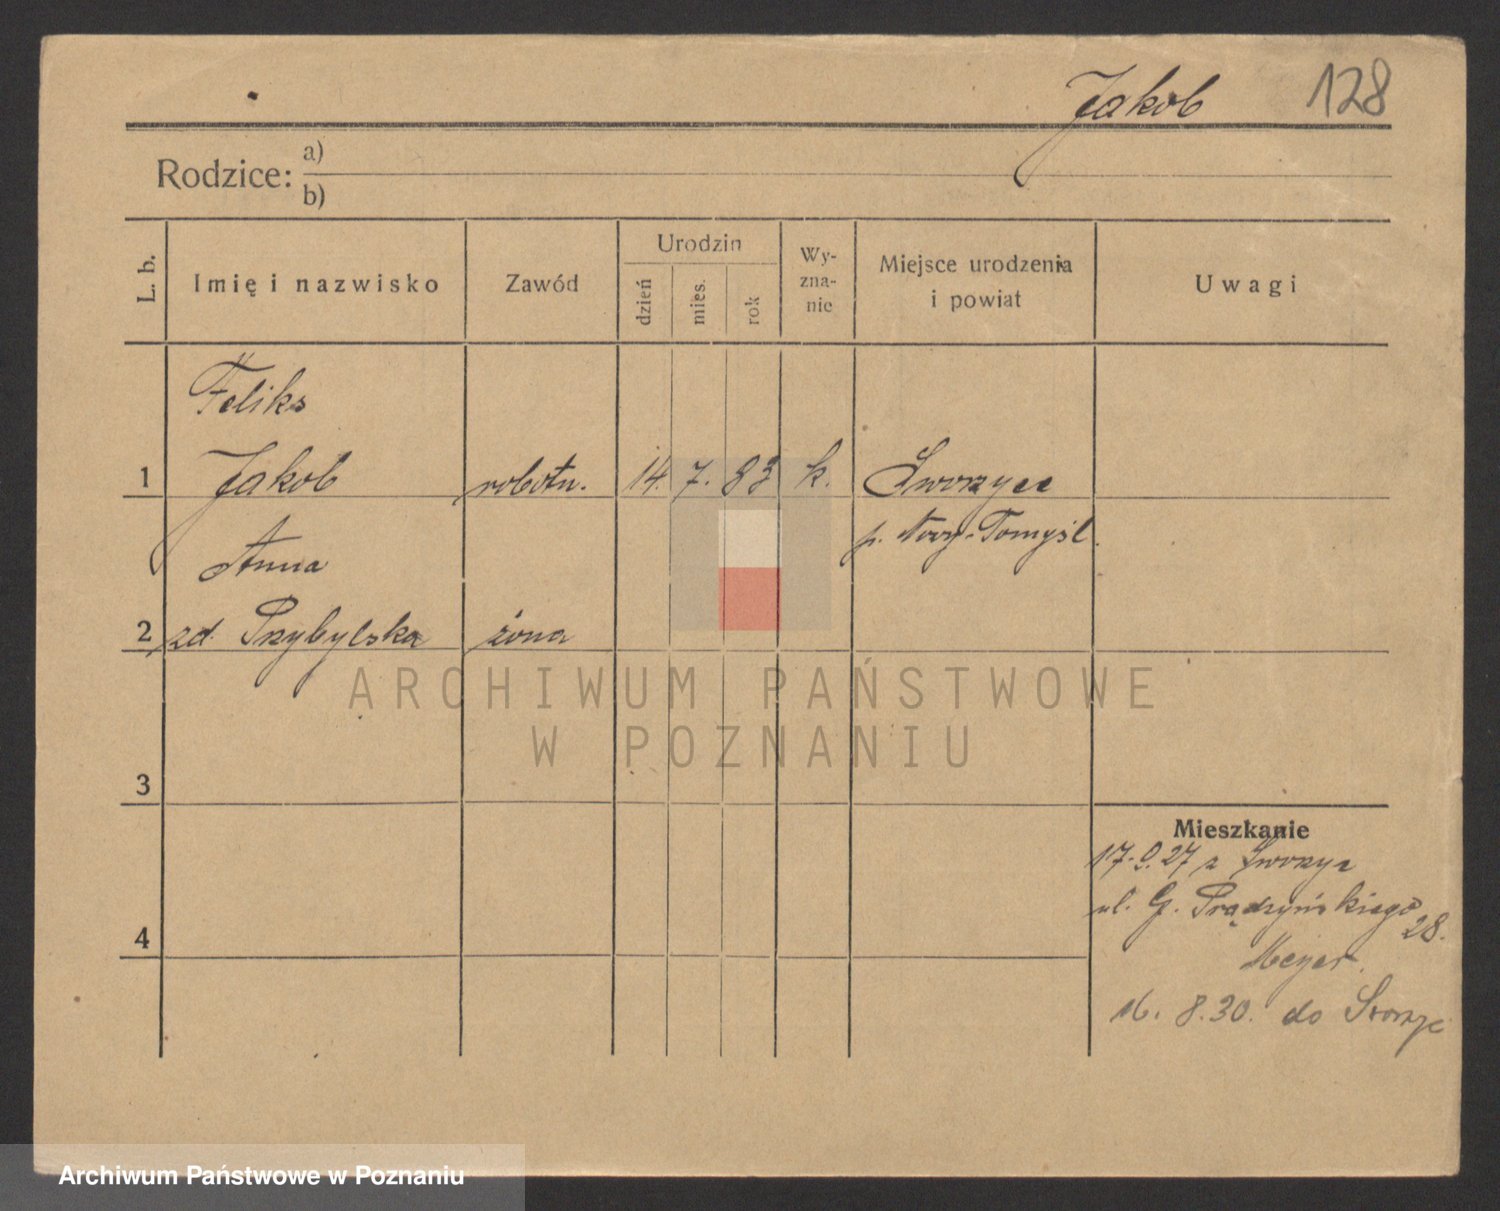 Jakob 128
Rodzice: a)
b)
L. b. Imię i nazwisko Zawód Urodzin dzień mies. rok Wy-zna-nie Miejsce urodzenia i powiat Uwagi
Feliks
1 Jakob robotn. 14. 7. 83 k.
p. Nowy-Tomyśl.
Anna
2 zd. Przybylska żona
ARCHIWUM PAŃSTWOWE
W POZNANIU
3
Mieszkanie
17.9.27 z
ul. G. Prądzyńskiego
28.
4
Meyer.
16. 8.30. do
Archiwum Państwowe w Poznaniu